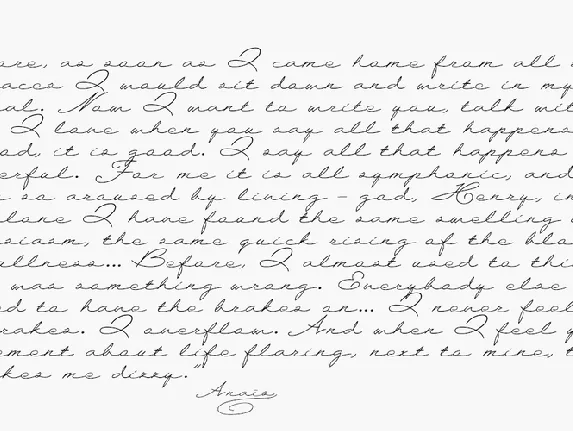 ore, as soon as I came home from all
acco I would sit down and write in my
al. Now I want to write you, talk wit
I love when you say all that happens
od, it is good. I say all that happens
erful. For me it is all symphonic, and
so aroused by living - god, Henry, in
alone I have found the same swelling
siasm, the same quick rising of the blo
ullness... Before, I almost used to thi
was something wrong. Everybody else
ed to have the brakes on... I never feel
rakes. I overflow. And when I feel y
ement about life flaring, next to mine, t
kes me dizzy."
Anaïs